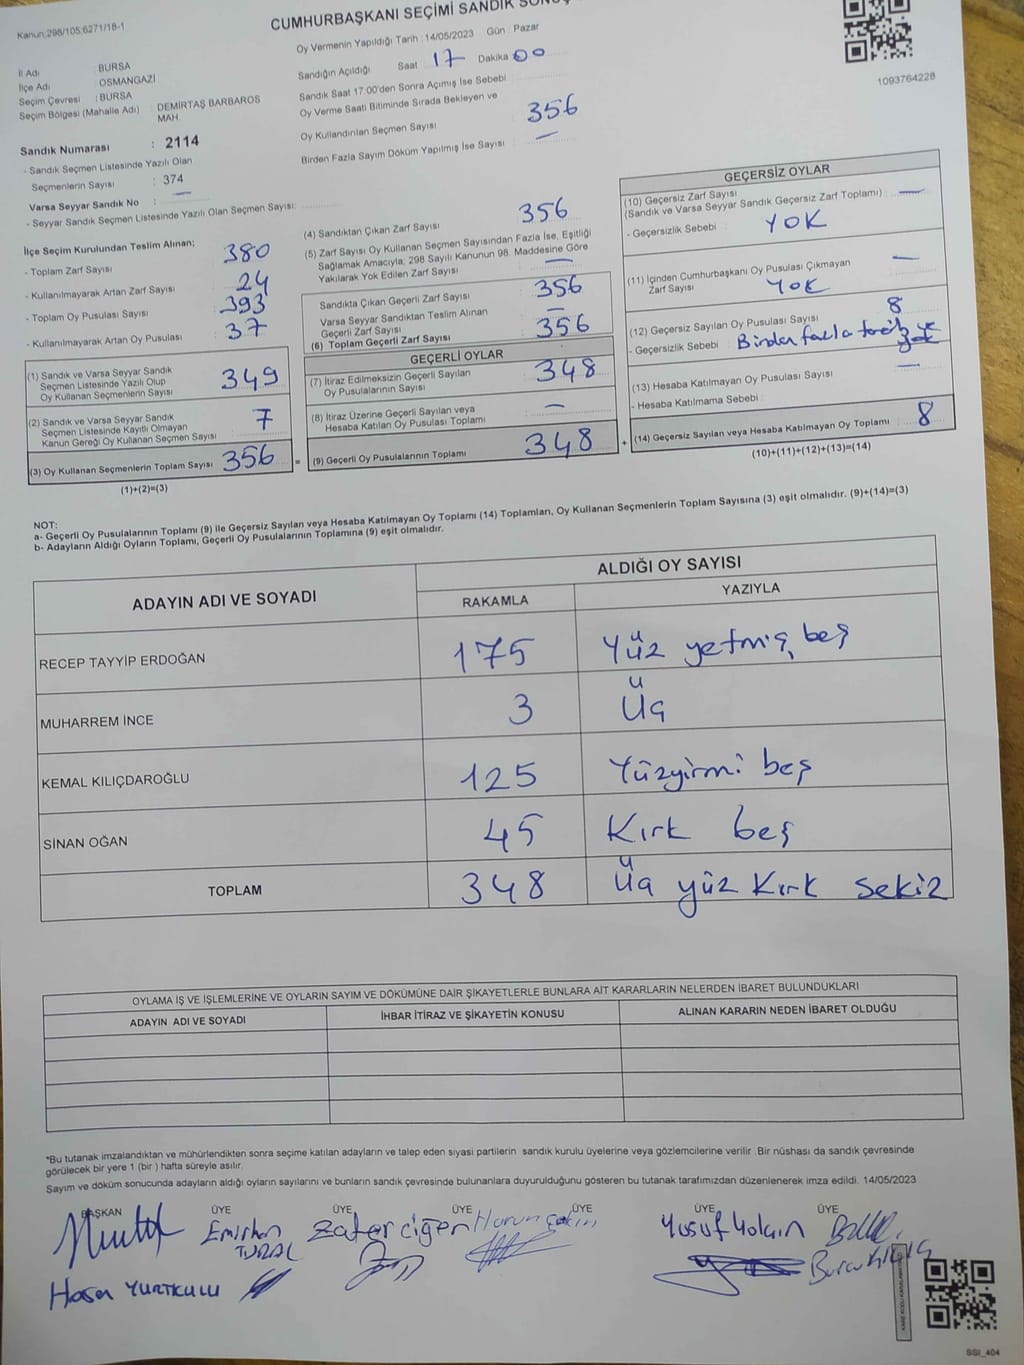 Kanun;298/105;6271/18-1
CUMHURBAŞKANI SEÇİMİ SANDIK
Oy Vermenin Yapıldığı Tarih : 14/05/2023 Gün : Pazar
Sandığın Açıldığı Saat 17 Dakika 00
Sandık Saat 17:00'den Sonra Açımış İse Sebebi :
Oy Verme Saati Bitiminde Sırada Bekleyen ve
Oy Kullandırılan Seçmen Sayısı 356
Birden Fazla Sayım Döküm Yapılmış İse Sayısı : —
1093764228
İl Adı : BURSA
İlçe Adı : OSMANGAZİ
Seçim Çevresi : BURSA
Seçim Bölgesi (Mahalle Adı) : DEMİRTAŞ BARBAROS
MAH.
Sandık Numarası : 2114
- Sandık Seçmen Listesinde Yazılı Olan
Seçmenlerin Sayısı : 374
Varsa Seyyar Sandık No : —
- Seyyar Sandık Seçmen Listesinde Yazılı Olan Seçmen Sayısı:
İlçe Seçim Kurulundan Teslim Alınan;
- Toplam Zarf Sayısı 380
- Kullanılmayarak Artan Zarf Sayısı 24
- Toplam Oy Pusulası Sayısı 393
- Kullanılmayarak Artan Oy Pusulası 37
(1) Sandık ve Varsa Seyyar Sandık
Seçmen Listesinde Yazılı Olup
Oy Kullanan Seçmenlerin Sayısı 349
(2) Sandık ve Varsa Seyyar Sandık
Seçmen Listesinde Kayıtlı Olmayan
Kanun Gereği Oy Kullanan Seçmen Sayısı 7
(3) Oy Kullanan Seçmenlerin Toplam Sayısı 356 =
(1)+(2)=(3)
(4) Sandıktan Çıkan Zarf Sayısı 356
(5) Zarf Sayısı Oy Kullanan Seçmen Sayısından Fazla İse, Eşitliği
Sağlamak Amacıyla; 298 Sayılı Kanunun 98. Maddesine Göre
Yakılarak Yok Edilen Zarf Sayısı —
Sandıkta Çıkan Geçerli Zarf Sayısı 356
Varsa Seyyar Sandıktan Teslim Alınan
Geçerli Zarf Sayısı —
(6) Toplam Geçerli Zarf Sayısı 356
GEÇERLİ OYLAR
(7) İtiraz Edilmeksizin Geçerli Sayılan
Oy Pusulalarının Sayısı 348
(8) İtiraz Üzerine Geçerli Sayılan veya
Hesaba Katılan Oy Pusulası Toplamı —
(9) Geçerli Oy Pusulalarının Toplamı 348 +
GEÇERSİZ OYLAR
(10) Geçersiz Zarf Sayısı
(Sandık ve Varsa Seyyar Sandık Geçersiz Zarf Toplamı) : —
- Geçersizlik Sebebi : YOK
(11) İçinden Cumhurbaşkanı Oy Pusulası Çıkmayan
Zarf Sayısı YOK —
(12) Geçersiz Sayılan Oy Pusulası Sayısı 8
- Geçersizlik Sebebi Birden fazla tercih
(13) Hesaba Katılmayan Oy Pusulası Sayısı —
- Hesaba Katılmama Sebebi :
(14) Geçersiz Sayılan veya Hesaba Katılmayan Oy Toplamı : 8
(10)+(11)+(12)+(13)=(14)
NOT:
a- Geçerli Oy Pusulalarının Toplamı (9) ile Geçersiz Sayılan veya Hesaba Katılmayan Oy Toplamı (14) Toplamları, Oy Kullanan Seçmenlerin Toplam Sayısına (3) eşit olmalıdır. (9)+(14)=(3)
b- Adayların Aldığı Oyların Toplamı, Geçerli Oy Pusulalarının Toplamına (9) eşit olmalıdır.
ADAYIN ADI VE SOYADI
ALDIĞI OY SAYISI
RAKAMLA YAZIYLA
RECEP TAYYİP ERDOĞAN 175 Yüz yetmiş beş
MUHARREM İNCE 3 Üç
KEMAL KILIÇDAROĞLU 125 Yüzyirmi beş
SİNAN OĞAN 45 Kırk beş
TOPLAM 348 Üç yüz Kırk sekiz
OYLAMA İŞ VE İŞLEMLERİNE VE OYLARIN SAYIM VE DÖKÜMÜNE DAİR ŞİKAYETLERLE BUNLARA AİT KARARLARIN NELERDEN İBARET BULUNDUKLARI
ADAYIN ADI VE SOYADI İHBAR İTİRAZ VE ŞİKAYETİN KONUSU ALINAN KARARIN NEDEN İBARET OLDUĞU
*Bu tutanak imzalandıktan ve mühürlendikten sonra seçime katılan adayların ve talep eden siyasi partilerin sandık kurulu üyelerine veya gözlemcilerine verilir. Bir nüshası da sandık çevresinde
görülecek bir yere 1 (bir) hafta süreyle asılır.
Sayım ve döküm sonucunda adayların aldığı oyların sayılarını ve bunların sandık çevresinde bulunanlara duyurulduğunu gösteren bu tutanak tarafımızdan düzenlenerek imza edildi. 14/05/2023
BAŞKAN ÜYE ÜYE ÜYE ÜYE ÜYE
Emirhan Zafer Ciğen Harun Yusuf Yalçın
TURAL
Hasan YURTKULU Burcu
SSI_404